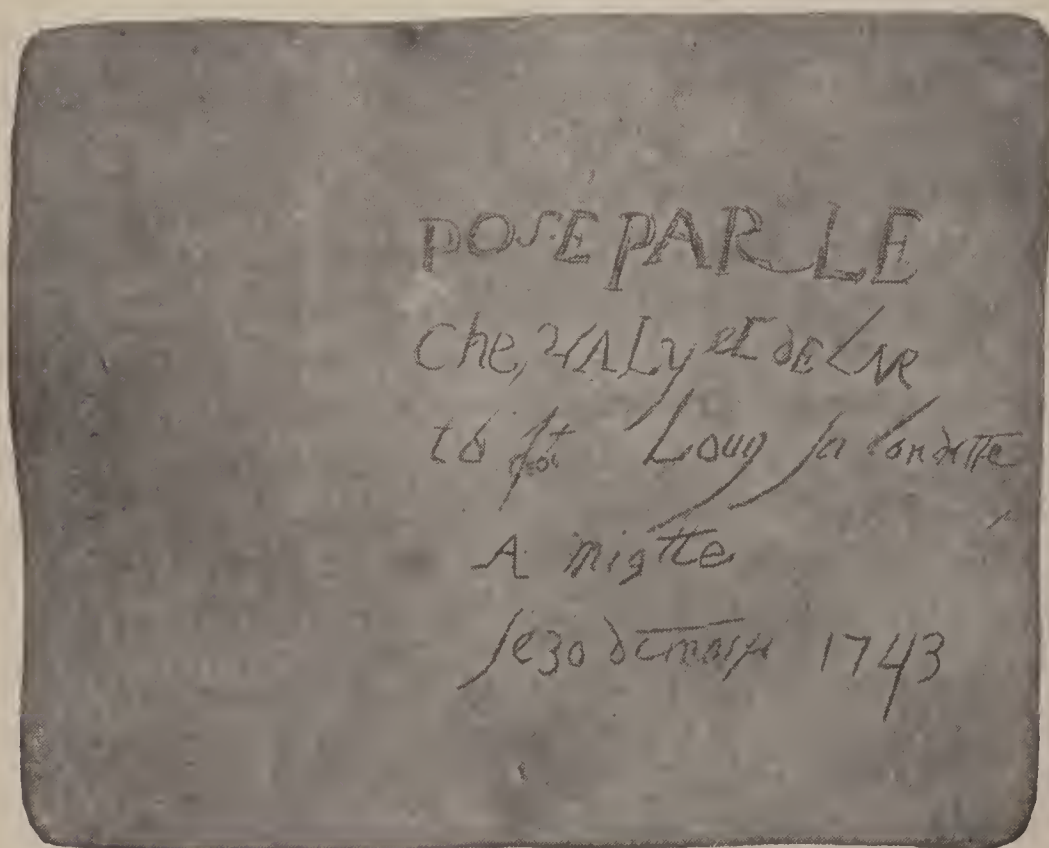 POSE PAR LE
Che, VALy et DE LAVR
to Louy la londette
A miotte
le 30 de mars 1743